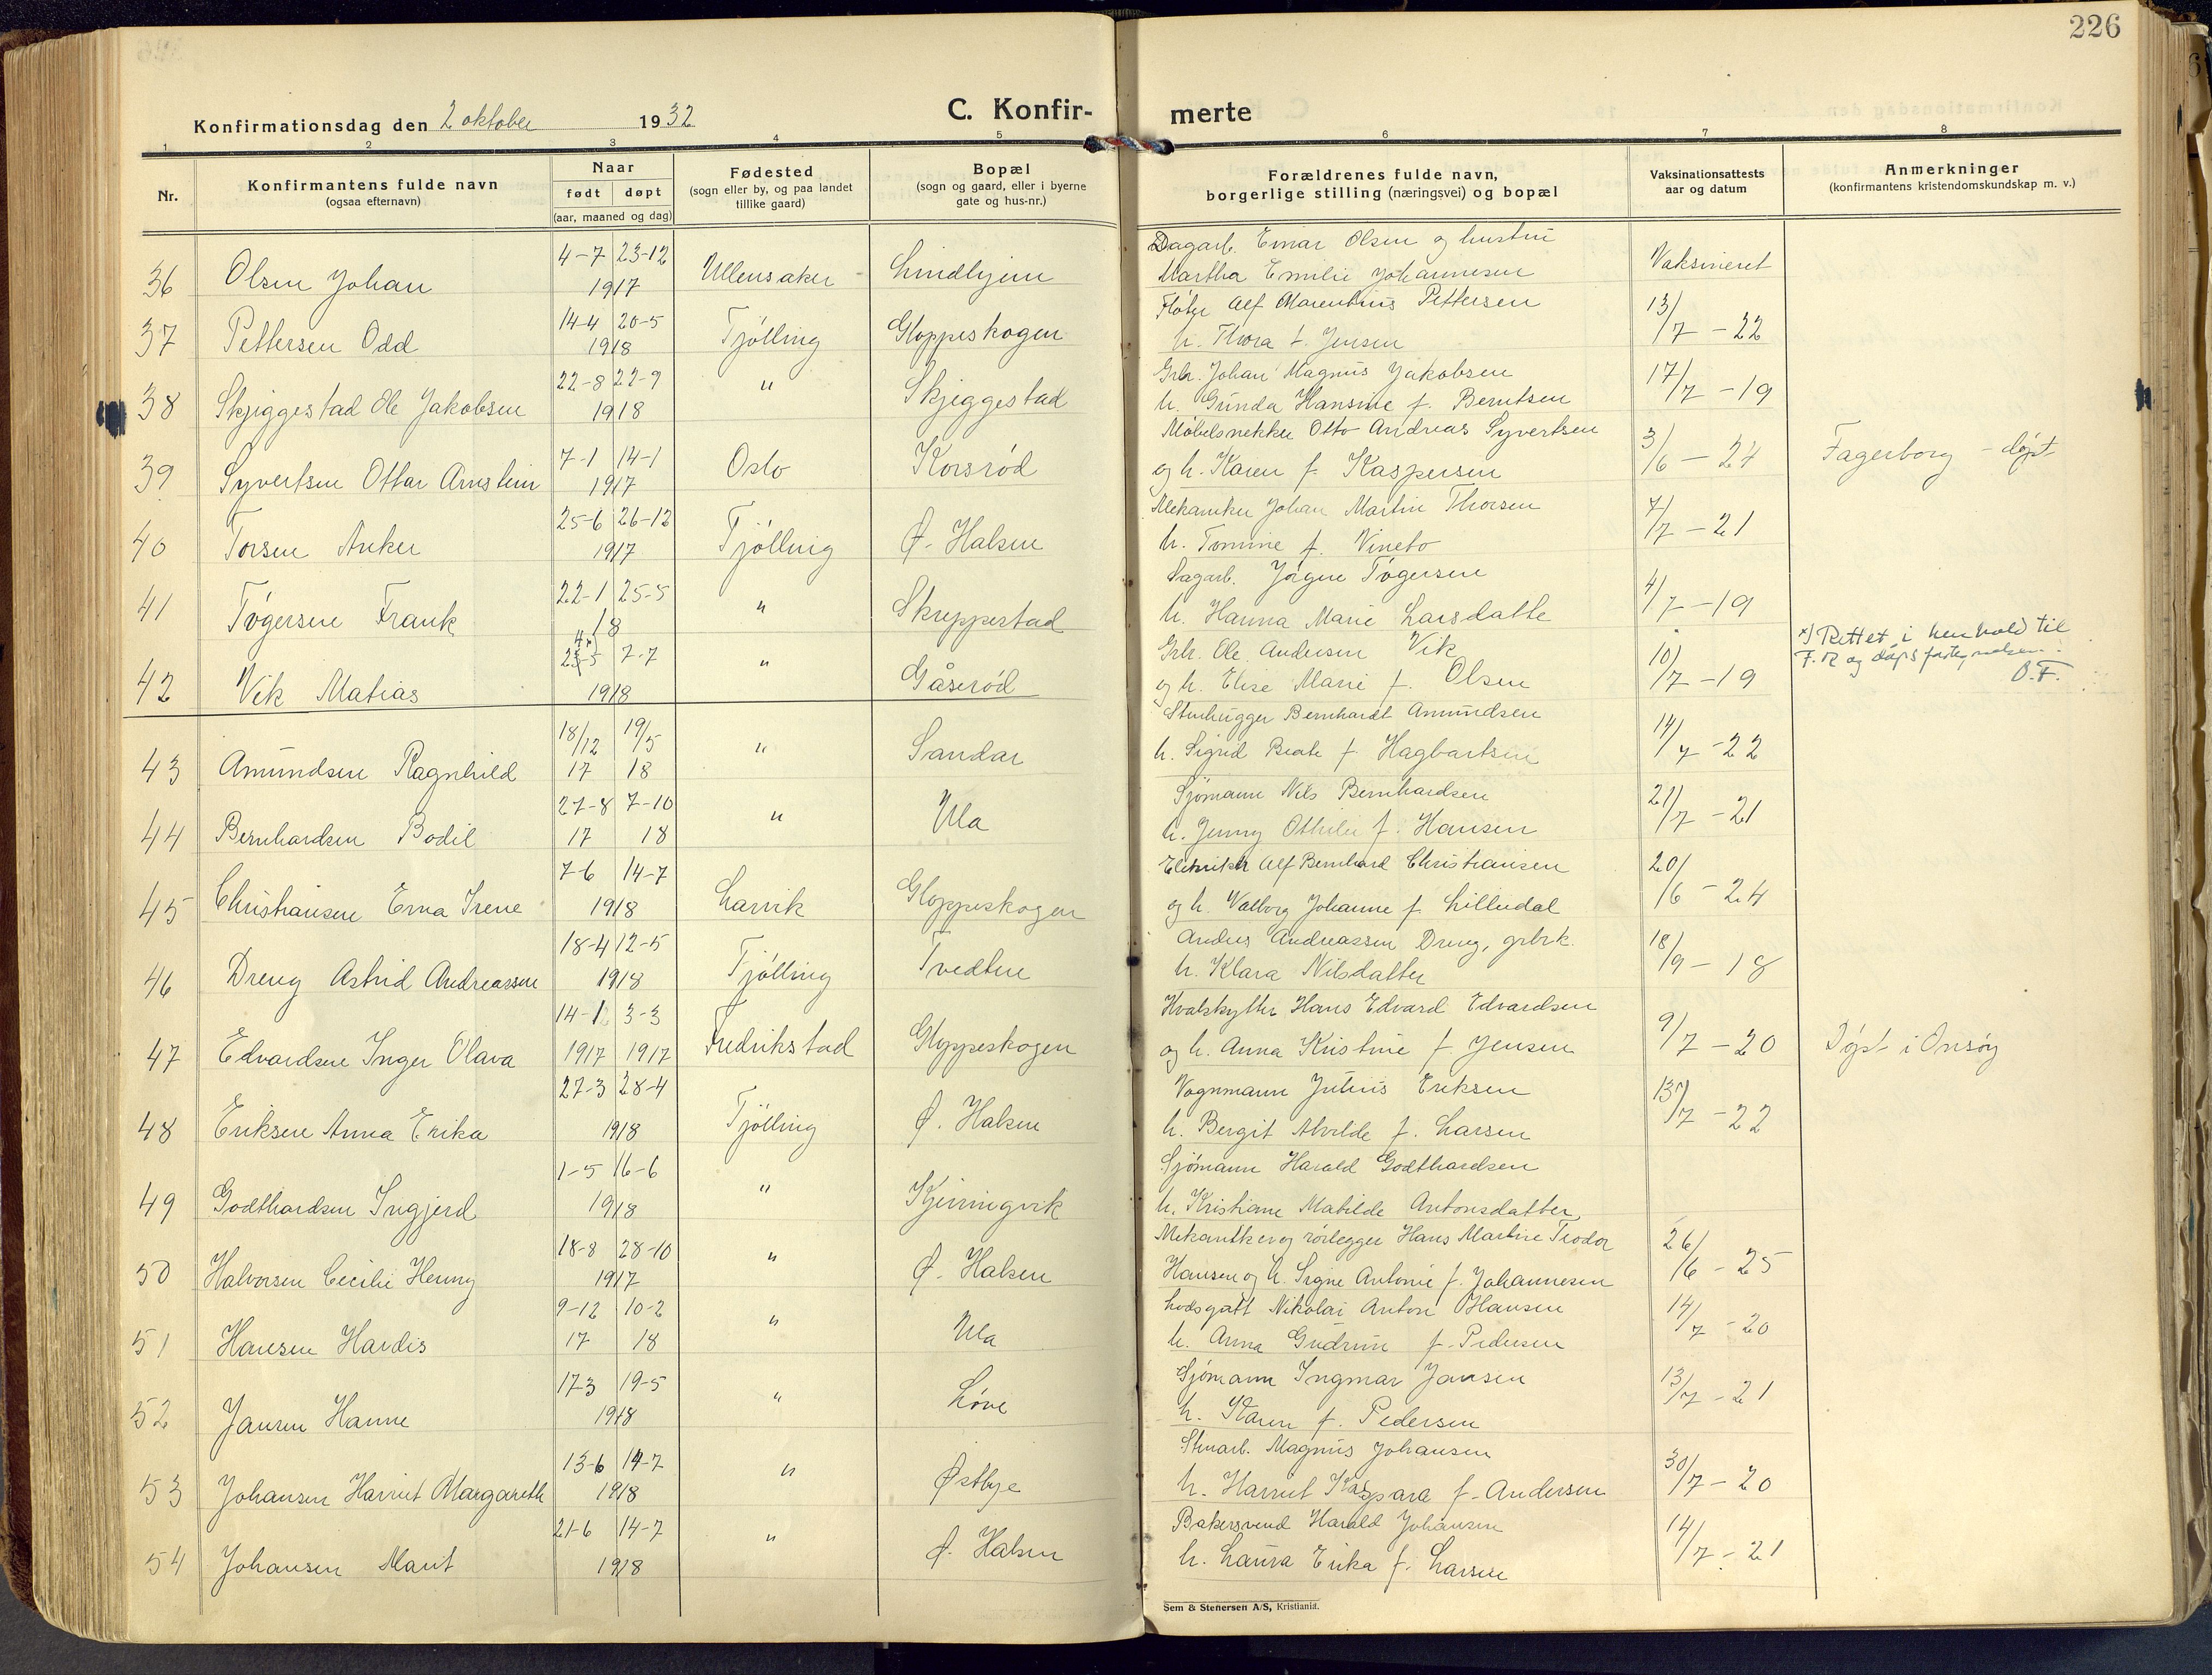 226
Konfirmationsdag den 2 oktober 1932
C. Konfir-
merte
1 2 3 4 5 6 7 8
Nr.
Konfirmantens fulde navn
(ogsaa efternavn)
Naar
født døpt
(aar, maaned og dag)
Fødested
(sogn eller by, og paa landet
tillike gaard)
Bopæl
(sogn og gaard, eller i byerne
gate og hus-nr.)
Forældrenes fulde navn,
borgerlige stilling (næringsvei) og bopæl
Vaksinationsattests
aar og datum
Anmerkninger
(konfirmantens kristendomskundskap m. v.)
36 Olsen Johan 4-7 23-12 1917 Ullensaker Lindhjem
Dagarb. Einar Olsen og hustru
Martha Emilie Johannesen
Vaksineret
37 Pettersen Odd 14-4 20-5 1918 Tjölling Gloppeskogen
Alf Marentius Pettersen
h. Thora f. Jensen
13/7 - 22
38 Skjiggestad Ole Jakobsen 22-8 22-9 1918 " Skjiggestad
Grbr. Johan Magnus Jakobsen
h. Gunda Hansine f. Berntsen
17/7 - 19
39 Syvertsen Ottar Arnstein 7-1 14-1 1917 Oslo Korsrød
Møbelsnekker Otto Andreas Syvertsen
og h. Karen f. Kaspersen
3/6 - 24
Fagerborg - døpt
40 Torsen Anker 25-6 26-12 1917 Tjölling Ø. Halsen
Mekaniker Johan Martin Thorsen
h. Tomine f. Vineto
7/7 - 21
41 Tögersen Frank 22-1 25-5 18 " Skreppestad
Sagarb. Jögne Tögersen
h. Hanna Marie Larsdatter
4/7 - 19
42 Vik Matias 4x) 23-5 7-7 1918 " Gåserød
Grbr. Ole Andersen Vik
og h. Elise Marie f. Olsen
10/7 - 19
x) Rettet i henhold til
F. R og dåpsförtegnelsen.
O.F.
43 Amundsen Ragnhild 18/12 17 19/5 18 " Sandar
Stenhugger Bernhardt Amundsen
h. Sigrid Beate f. Hagbartsen
14/7 - 22
44 Bernhardsen Bodil 27-8 17 7-10 18 " Ula
Sjömann Nils Bernhardsen
h. Jenny Othilie f. Hansen
21/7 - 21
45 Christiansen Erna Irene 7-6 14-7 1918 Larvik Gloppeskogen
Elektriker Alf Bernhard Christiansen
og h. Valborg Johanne f. Lilledal
20/6 - 24
46 Dreng Astrid Andreassen 18-4 12-5 1918 Tjölling Tvedten
Anders Andreassen Dreng, grbrk.
h. Klara Nilsdatter
18/9 - 18
47 Edvardsen Inger Olava 14-1 1917 3-3 1917 Fredrikstad Gloppeskogen
Hvalskytter Hans Edvard Edvardsen
og h. Anna Kristine f. Jensen
9/7 - 20
Döpt i Onsöy
48 Eriksen Anna Erika 27-3 28-4 1918 Tjölling Ø. Halsen
Vognmann Julius Eriksen
h. Bergit Alvilde f. Larsen
13/7 - 22
49 Godthardsen Ingjerd 1-5 16-6 1918 " Kjerringvik
Sjömann Harald Godthardsen
h. Kristiane Matilde Antonsdatter
50 Halvorsen Cecilie Henny 18-8 28-10 1917 " Ø. Halsen
Mekaniker og rörlegger Hans Martin Teodor
Hansen og h. Signe Antonie f. Johannesen
26/6 - 25
51 Hansen Hardis 9-12 17 10-2 18 " Ula
Losgutt Nikolai Anton Hansen
h. Anna Gudrun f. Pedersen
14/7 - 20
52 Jansen Hanne 17-3 19-5 1918 " Løve
Sjömann Ingmar Jansen
h. Karen f. Pedersen
13/7 - 21
53 Johansen Harriet Margareth 13-6 14-7 1918 " Østbye
Stenarb. Magnus Johansen
h. Harriet Kaspara f. Andersen
30/7 - 20
54 Johansen Maut 21-6 14-7 1918 " Ø. Halsen
Bakersvend Harald Johansen
h. Laura Erika f. Larsen
14/7 - 21
Sem & Stenersen A/S, Kristiania.